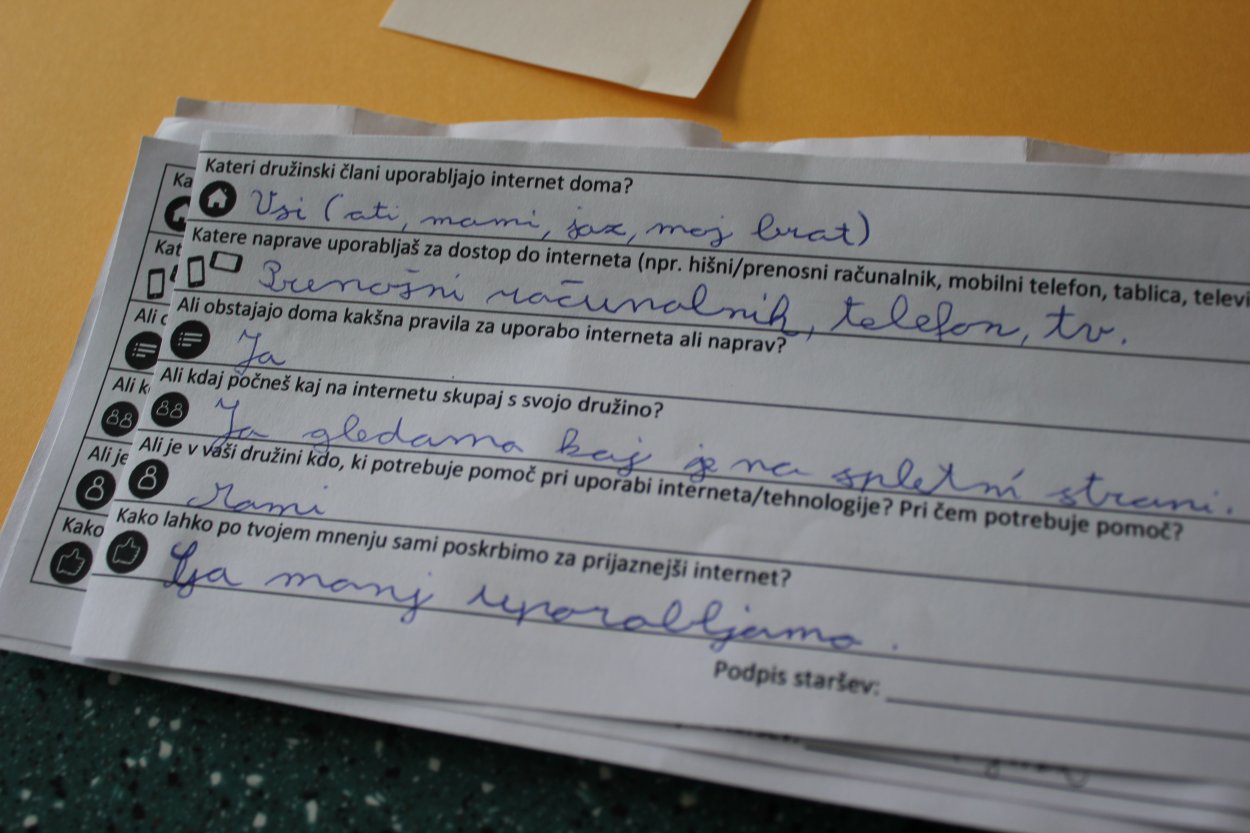 Kateri družinski člani uporabljajo internet doma?
Vsi (ati, mami, jaz, moj brat)
Katere naprave uporabljaš za dostop do interneta (npr. hišni/prenosni računalnik, mobilni telefon, tablica, televi
Prenošni računalnik, telefon, tv.
Ali obstajajo doma kakšna pravila za uporabo interneta ali naprav?
Ja
Ali kdaj počneš kaj na internetu skupaj s svojo družino?
Ja gledamo kaj je na spletni strani.
Ali je v vaši družini kdo, ki potrebuje pomoč pri uporabi interneta/tehnologije? Pri čem potrebuje pomoč?
Mami
Kako lahko po tvojem mnenju sami poskrbimo za prijaznejši internet?
Ga manj uporabljamo.
Podpis staršev:
Ka
Kat
Ali
Ali k
Ali je
Kako